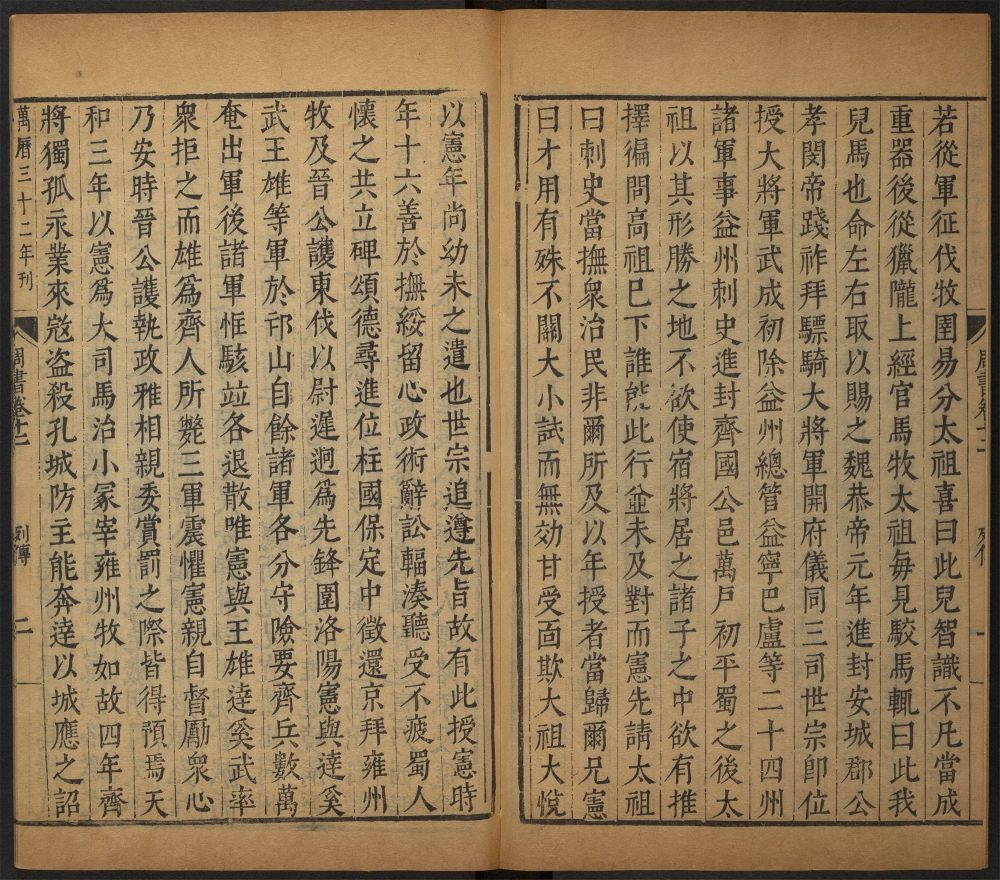 若從軍征伐牧圉易分太祖喜曰此兒智識不凡當成
重器後從獵隴上經官馬牧太祖毎見駮馬輒曰此我
兒馬也命左右取以賜之魏恭帝元年進封安城郡公
孝閔帝踐祚拜驃騎大將軍開府儀同三司世宗卽位
授大將軍武成初除益州總管益寧巴盧等二十四州
諸軍事益州刺史進封齊國公邑萬戸初平蜀之後太
祖以其形勝之地不欲使宿將居之諸子之中欲有推
擇徧問高祖巳下誰能此行並未及對而憲先請太祖
曰刺史當撫衆治民非爾所及以年授者當歸爾兄憲
曰才用有殊不關大小試而無効甘受面欺大祖大悅
周書卷十二
列傳
一
以憲年尚幼未之遣也世宗追遵先旨故有此授憲時
年十六善於撫綏留心政術辭訟輻湊聽受不疲蜀人
懷之共立碑頌德尋進位柱國保定中徵還京拜雍州
牧及晉公護東伐以尉遲迥爲先鋒圍洛陽憲與達奚
武王雄等軍於邙山自餘諸軍各分守險要齊兵數萬
奄出軍後諸軍恇駭竝各退散唯憲與王雄達奚武率
衆拒之而雄爲齊人所斃三軍震懼憲親自督勵衆心
乃安時晉公護執政雅相親委賞罰之際皆得預焉天
和三年以憲爲大司馬治小冢宰雍州牧如故四年齊
將獨孤永業來宼盜殺孔城防主能奔達以城應之詔
萬曆三十二年刊
周書卷十二
列傳
二